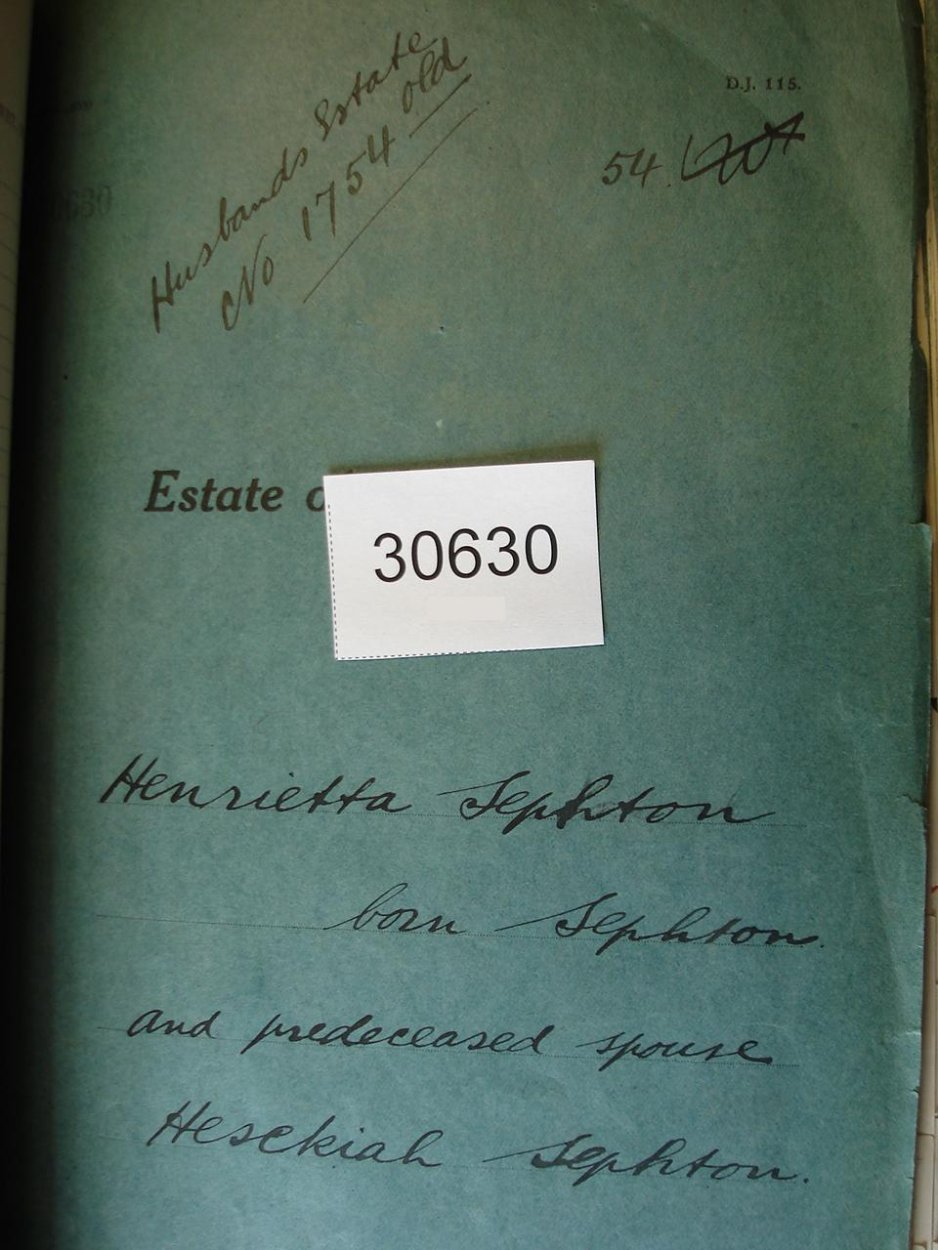 Husbands Estate
No 1754 old
D.J. 115.
54.
Estate o
30630
Henrietta Sephton
born Sephton.
and predeceased spouse
Hesekiah Sephton.